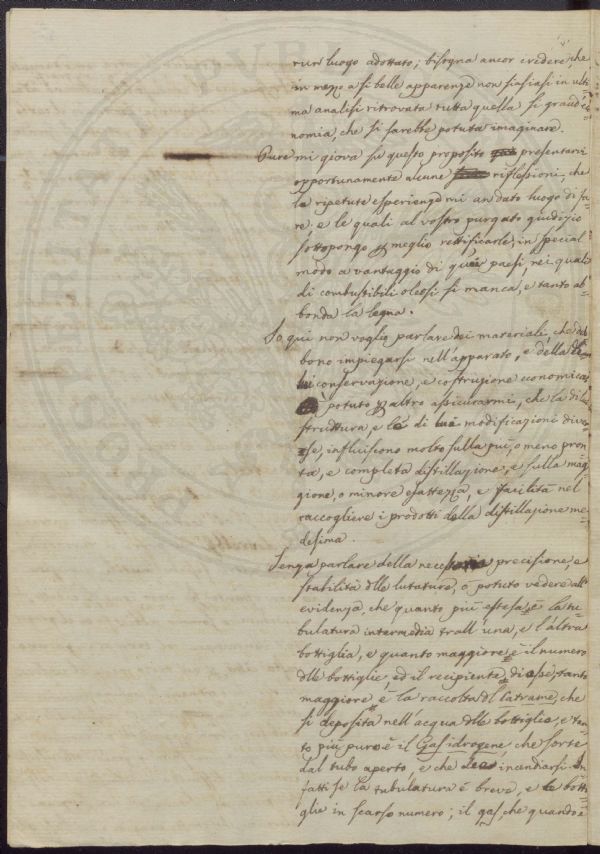 run luogo adottato; bisogna ancor credere, che
in mezzo a sì belle apparenze non siasiasi in ulti
ma analisi ritrovata tutta quella sì grand'eco
nomia, che si sarebbe potuta imaginare.
Pure mi giova su questo proposito presentarvi
opportunamente alcune riflessioni, che
le ripetute esperienze mi an dato luogo di fa
re; e le quali al vostro purgato giudizio
sottopongo meglio rettificarle, in special
modo a vantaggio di quei paesi, nei quali
di combustibili oleosi si manca, e tanto ab
bonda la legna.
Io qui non voglio parlare dei materiali, che deb
bono impiegarsi nell'apparato, e della di
lui conservazione, e costruzione economica;
ò potuto altro assicurarmi, che la di lui
struttura e le di lui modificazioni diver
se, influiscono molto sulla più, o meno pron
ta, e completa distillazione, e sulla mag
gione, o minore esattezza, e facilità nel
raccogliere i prodotti della distillazione me
desima.
Senza parlare della necessaria precisione, e
stabilità dlle lutature, ò potuto vedere all'
evidenza, che quanto più estesa è la tu
bulatura intermedia trall'una, e l'altra
bottiglia, e quanto maggiore è il numero
dlle bottiglie, ed il recipiente di esse, tanto
maggiore è la raccolta dl Catrame, che
si deposita nell'acqua dlle bottiglie, e tan
to più puro è il Gas idrogene, che sorte
dal tubo aperto, e che incendiarsi. In
fatti se la tubulatura è breve, e le botti
glie in scarso numero; il gas, che quando è